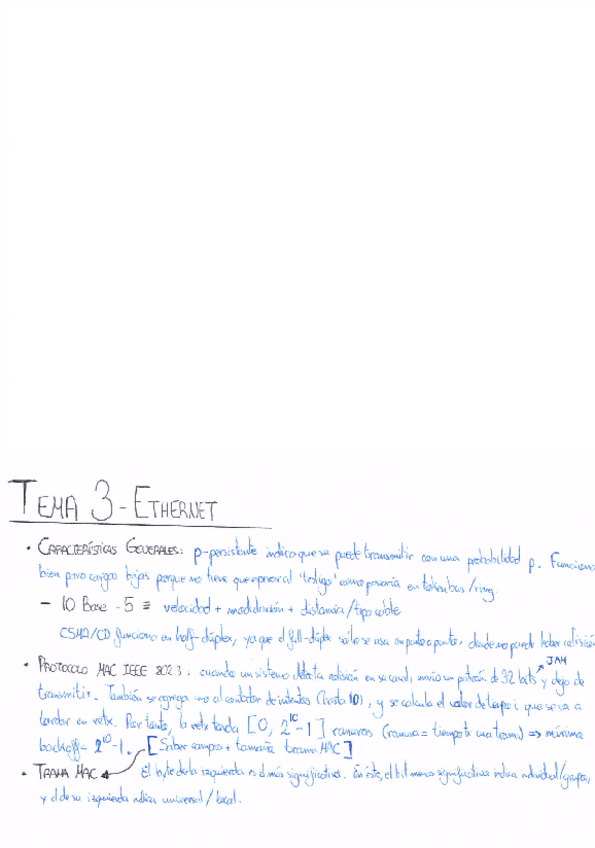 TEMA 3 - ETHERNET
• CARACTERÍSTICAS GENERALES: p-persistente indica que se puede transmitir con una probabilidad p. Funciona
bien para cargas bajas porque no tiene que esperar al 'testigo' como pasaría en token bus/ring.
– 10 Base - 5 ≡ velocidad + modulación + distancia/tipo cable
CSMA/CD funciona en half-dúplex, ya que el full-dúplex sólo se usa en punto a punto, donde no puede haber colisión
• PROTOCOLO MAC IEEE 802.3: cuando un sistema detecta colisión en su canal, envía un patrón de 32 bits y deja de
JAM
transmitir. También se agrega uno al contador de intentos (hasta 10), y se calcula el valor de tiempo i que se va a
tardar en retx. Por tanto, la retx tarda [0, 2^10-1] ranuras (ranura = tiempo tx una trama) => máximo
backoff = 2^10-1. [Saber campos + tamaño trama MAC]
• TRAMA MAC El byte de la izquierda es el más significativo. En éste, el bit menos significativo indica individual/grupo,
y el de su izquierda indica universal/local.